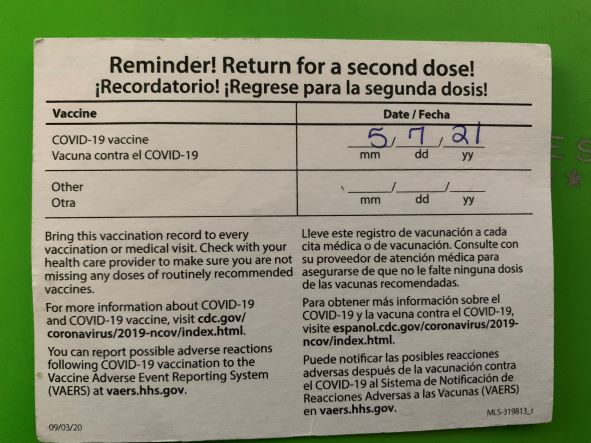 Reminder! Return for a second dose!
¡Recordatorio! ¡Regrese para la segunda dosis!
Vaccine
Date / Fecha
COVID-19 vaccine
Vacuna contra el COVID-19
5 / 7 / 21
mm dd yy
Other
Otra
/ /
mm dd yy
Bring this vaccination record to every
vaccination or medical visit. Check with your
health care provider to make sure you are not
missing any doses of routinely recommended
vaccines.
For more information about COVID-19
and COVID-19 vaccine, visit cdc.gov/
coronavirus/2019-ncov/index.html.
You can report possible adverse reactions
following COVID-19 vaccination to the
Vaccine Adverse Event Reporting System
(VAERS) at vaers.hhs.gov.
Lleve este registro de vacunación a cada
cita médica o de vacunación. Consulte con
su proveedor de atención médica para
asegurarse de que no le falte ninguna dosis
de las vacunas recomendadas.
Para obtener más información sobre el
COVID-19 y la vacuna contra el COVID-19,
visite espanol.cdc.gov/coronavirus/2019-
ncov/index.html.
Puede notificar las posibles reacciones
adversas después de la vacunación contra
el COVID-19 al Sistema de Notificación de
Reacciones Adversas a las Vacunas (VAERS)
en vaers.hhs.gov.
09/03/20
MLS-319813_r